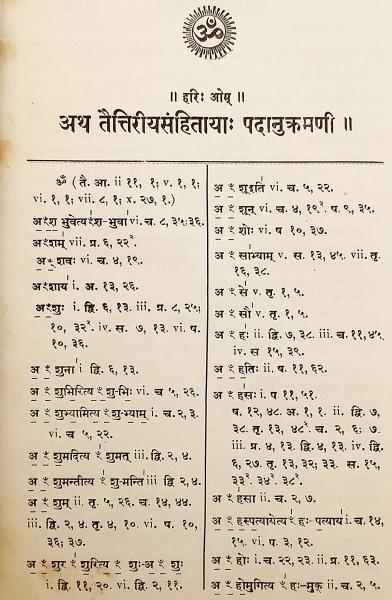 ॐ
॥ हरिः ओम् ॥
अथ तैत्तिरीयसंहितायाः पदानुक्रमणी ॥
ॐ ( तै. आ. ii ११, १; v. १, १;
vi. १, १; vii. ८, १; x. २७, १.)
अꣳश भुवेत्यꣳश-भुवा vi. च. ८, ३५;३६.
अꣳशम् vii. प्र. ६, २२².
अꣳशवः vi. च. ४, १९.
अꣳशाय i. अ. १३, २६.
अꣳशुः i. द्वि. ६, १३. iii. प्र. ८, २५;
१०, ३२². iv. स. ७, १३. vi. ष.
१०, ३६.
अꣳशुना i. द्वि. ६, १३.
अꣳशुभिरित्यꣳशु-भिः vi. च ५, २६.
अꣳशुभ्यामित्यꣳशु-भ्याम् i. च. २, ३.
vi. च ५, २२.
अꣳशुमदित्यꣳशुमत् iii. द्वि. २, ४.
अꣳशुमन्तीत्यꣳशु-मन्ति iii द्वि २, ४.
अꣳशुम् ii. तृ. ५, २६. च. १४, ४४.
iii. द्वि. २, ४. तृ. ४, १०. vi. ष. १०,
३६; ३७.
अꣳशुरꣳशुरित्यꣳशुः-अꣳशुः
i. द्वि. ११, २०. vi. द्वि. २, ११.
अꣳशूद्रति vi. च. ५, २२.
अꣳशून् vi. च. ४, १९² ष. ९, ३५.
अꣳशोः vi. ष १०, ३७.
अꣳसाभ्याम् v. स. १३, ४५. vii. तृ.
१६, ३८.
अꣳसे v. तृ. १, ५.
अꣳसौ v. तृ. १, ५.
अꣳहः ii. द्वि. ७, ३८ iii. च. ११,४५.
iv. स १५, ३९.
अꣳहतिः ii. ष. ११, ६२.
अꣳहसः i. ष ११, ५१.
ष. १२, ४८. अ. १, १. ii. द्वि. ७,
३८. तृ. १३, ४८². च. २, ६; ७.
iii. प्र. ४, १३. द्वि. ४, १३. iv. द्वि.
६, २७. तृ. १३, ३२; ३३. स. १५,
३३² ३४² ३८².
अꣳहसा ii. च. २, ७.
अꣳहस्पत्यायेत्यꣳहः पत्याय i. च. १४,
१५. vi. प. ३, १२.
अꣳहोः i. च. २२, २३ ii. प्र. ११, ६३.
अꣳहोमुगित्यꣳहः-मुक् ii. च. २, ५.